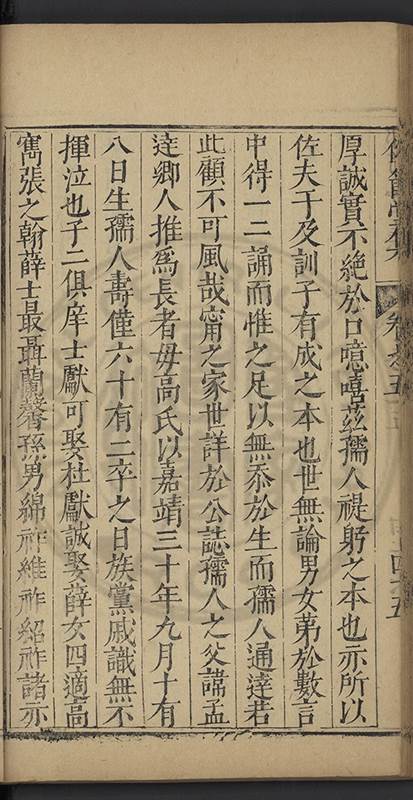 厚誠實不絶於口噫嘻茲孺人禔躬之本也亦所以
佐夫子及訓子有成之本也世無論男女苐於數言
中得一二誦而惟之足以無忝於生而孺人通達若
此顧不可風哉甯之家世詳於公誌孺人之父諱孟
逵鄉人推爲長者母高氏以嘉靖三十年九月十有
八日生孺人壽僅六十有二卒之日族黨戚識無不
揮泣也子二俱庠士獻可娶杜獻誠娶薛女四適高
寯張之翰薛士最聶蘭馨孫男綿祚維祚紹祚諸亦